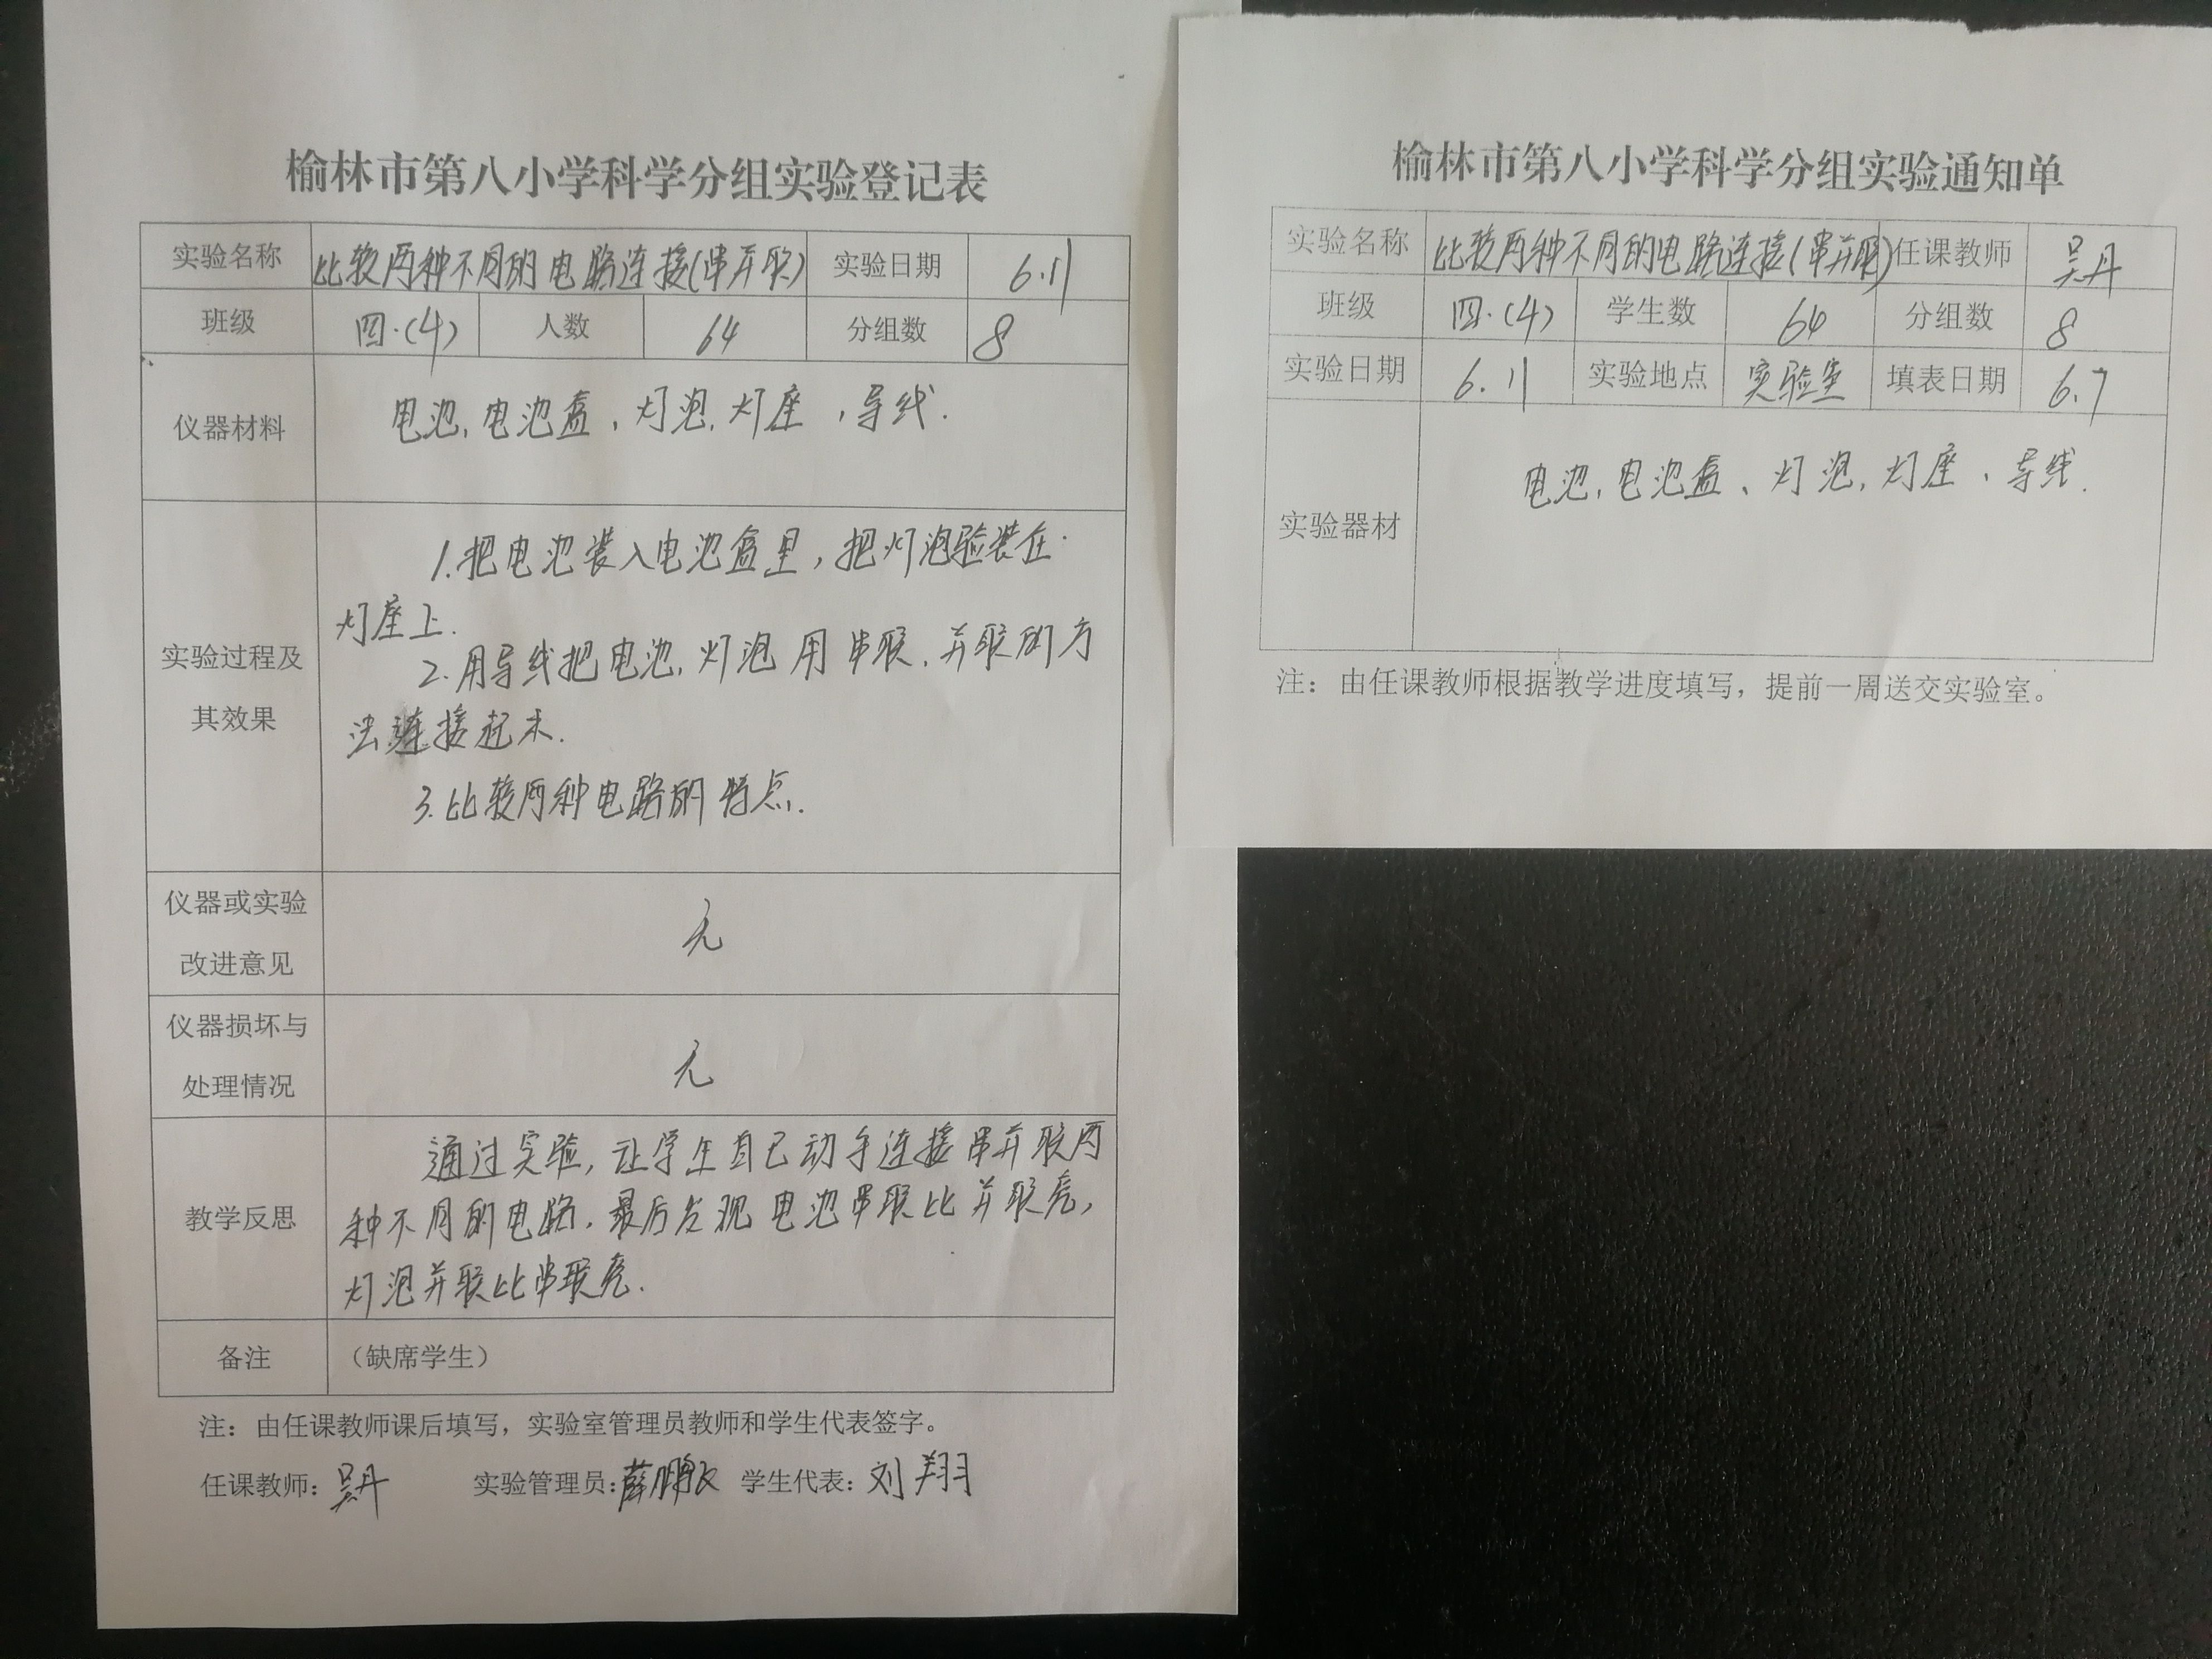 榆林市第八小学科学分组实验登记表
实验名称 比较两种不同的电路连接(串并联) 实验日期 6.11
班级 四.(4) 人数 64 分组数 8
仪器材料 电池,电池盒、灯泡,灯座、导线.
1.把电池装入电池盒里,把灯泡验装在
灯座上.
实验过程及
2.用导线把电池,灯泡用串联、并联的方
其效果
法连接起来.
3.比较两种电路的特点.
仪器或实验
改进意见
无
仪器损坏与
处理情况
无
教学反思
通过实验,让学生自己动手连接串并联两
种不同的电路,最后发现电池串联比并联亮,
灯泡并联比串联亮.
备注 (缺席学生)
注:由任课教师课后填写,实验室管理员教师和学生代表签字。
任课教师:吴丹 实验管理员: 学生代表:刘翔
榆林市第八小学科学分组实验通知单
实验名称 比较两种不同的电路连接(串并联) 任课教师 吴丹
班级 四.(4) 学生数 64 分组数 8
实验日期 6.11 实验地点 实验室 填表日期 6.7
实验器材 电池,电池盒、灯泡,灯座、导线.
注:由任课教师根据教学进度填写,提前一周送交实验室。